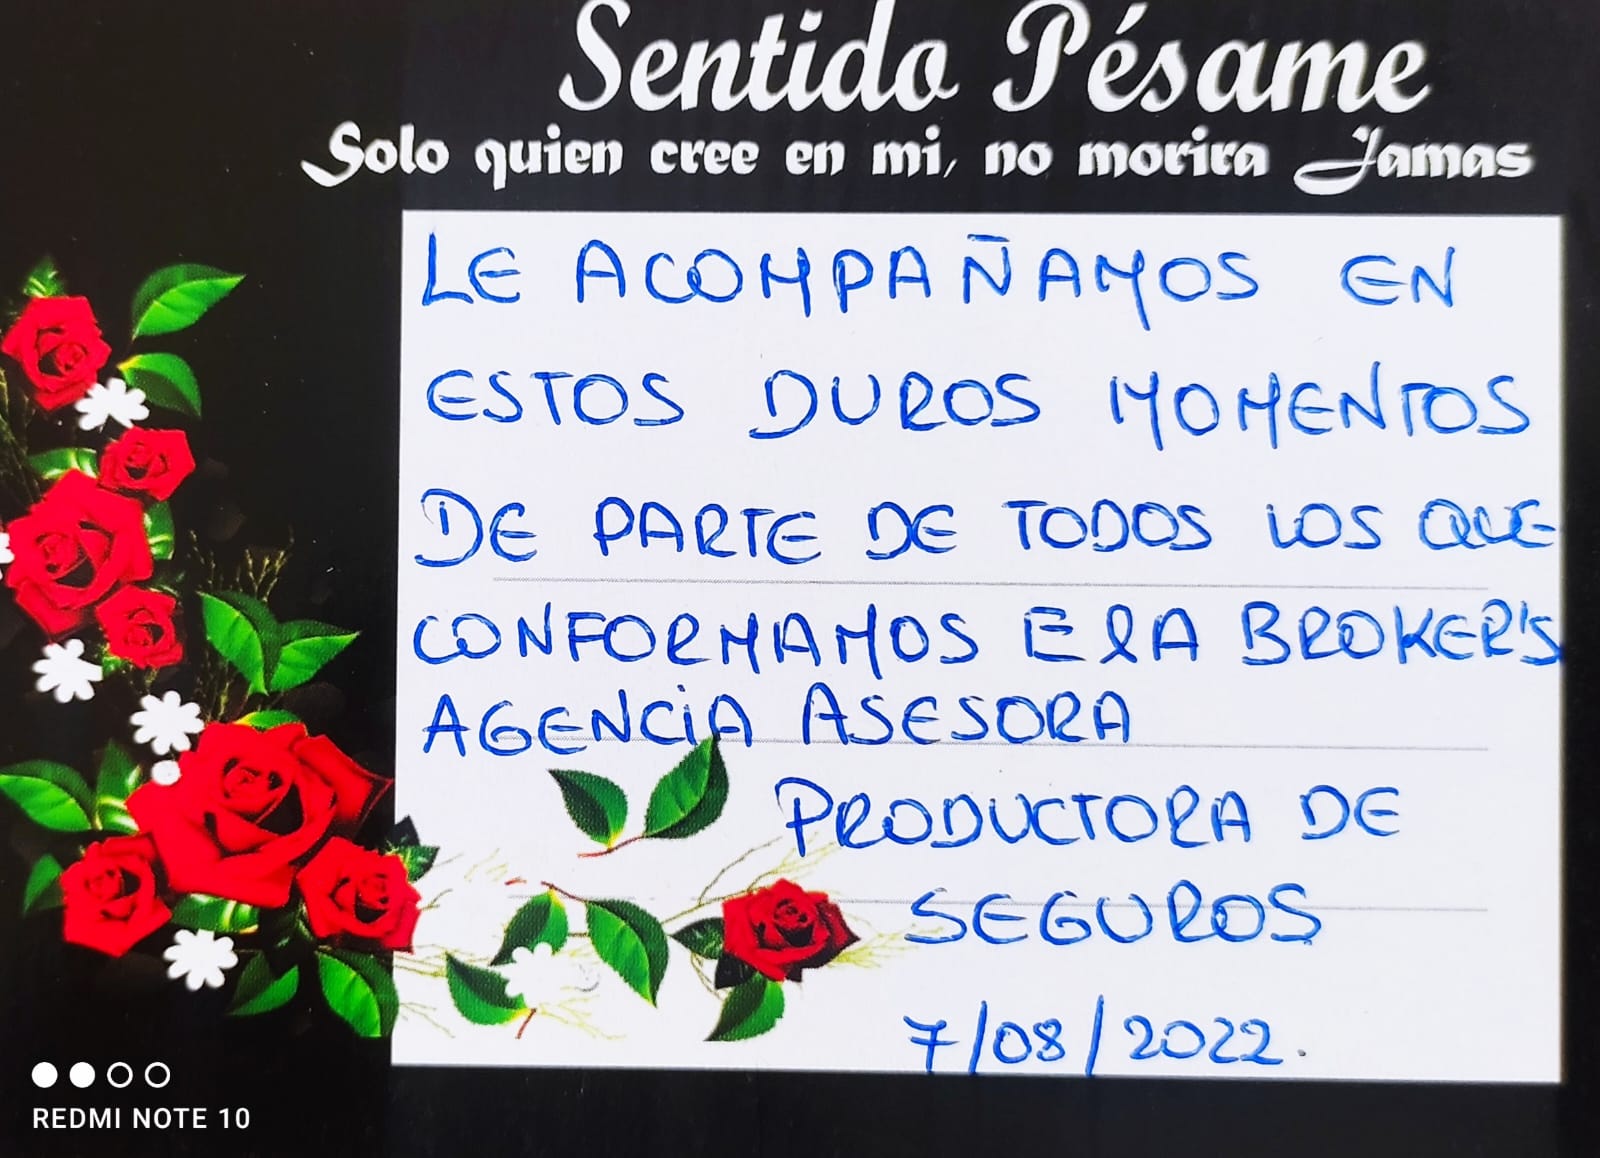 Sentido Pésame
Solo quien cree en mi, no morira Jamas
LE ACOMPAÑAMOS EN
ESTOS DUROS MOMENTOS
DE PARTE DE TODOS LOS QUE
CONFORMAMOS E&A BROKER'S
AGENCIA ASESORA
PRODUCTORA DE
SEGUROS
7/08/2022.
REDMI NOTE 10